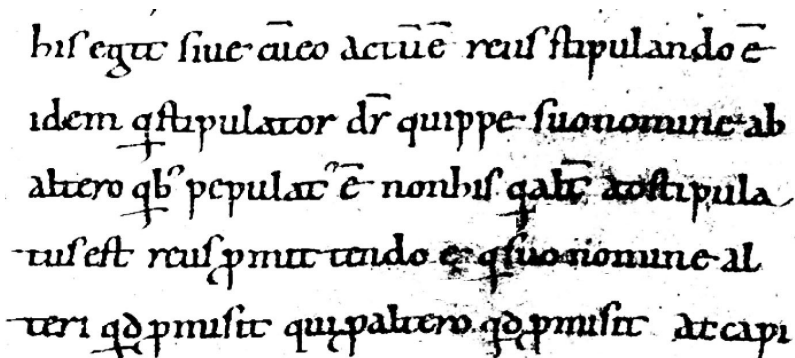 his egit siue cū eo actū ē reus stipulando ē
idem q̵ stipulator dr̄ quippe suo nomine ab
altero q̵ b' pepulat' ē non his q̵ alt̄ astipula
tus est reus ꝓmittendo ę q̵ suo nomine al
teri qd̵ ꝓmisit qui ꝓ altero qd̵ ꝓmisit at capi